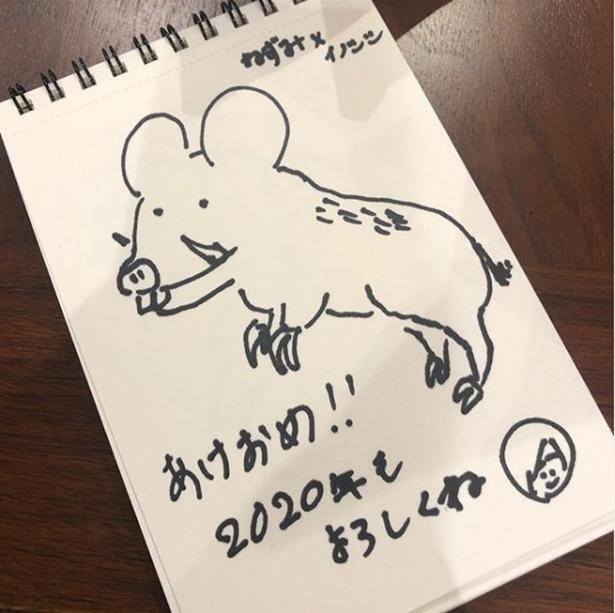 ねずみ×イノシシ
あけおめ!!
2020年も
よろしくね